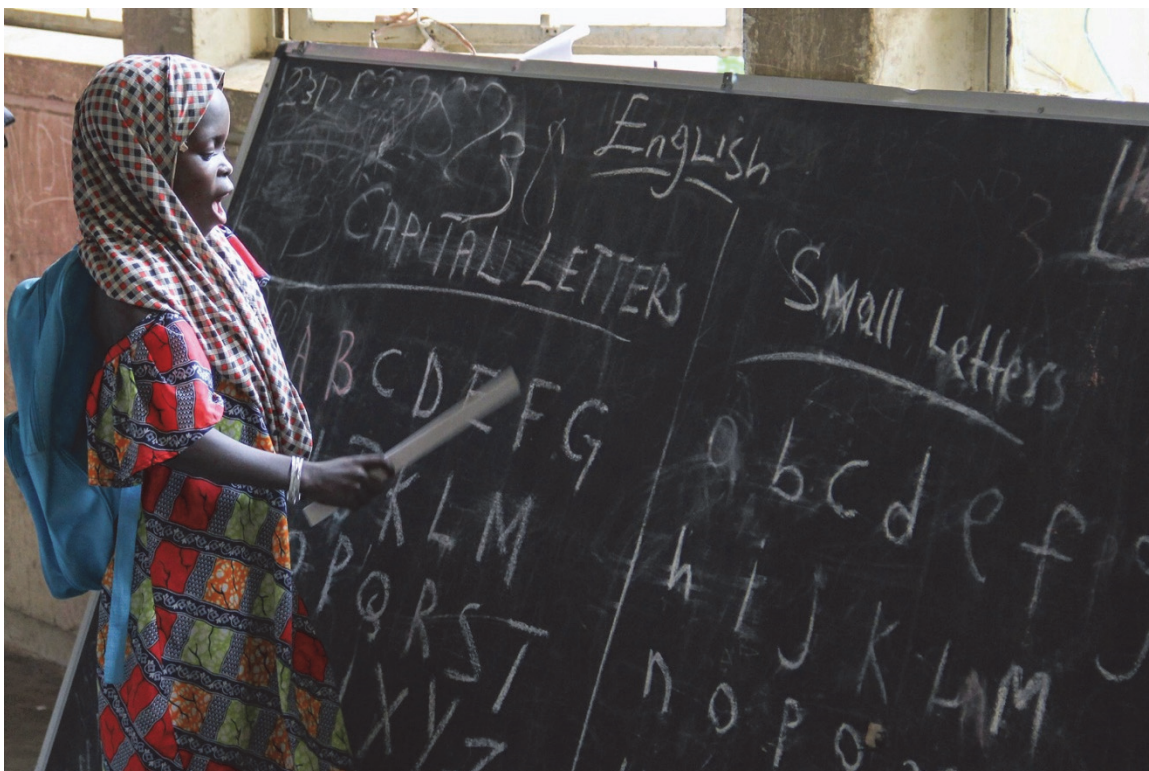 English
CAPITALL LETTERS
A B C D E F G
K L M
O P Q R S T
X Y Z
Small Letters
a b c d e f g
h i J K L M
n o p